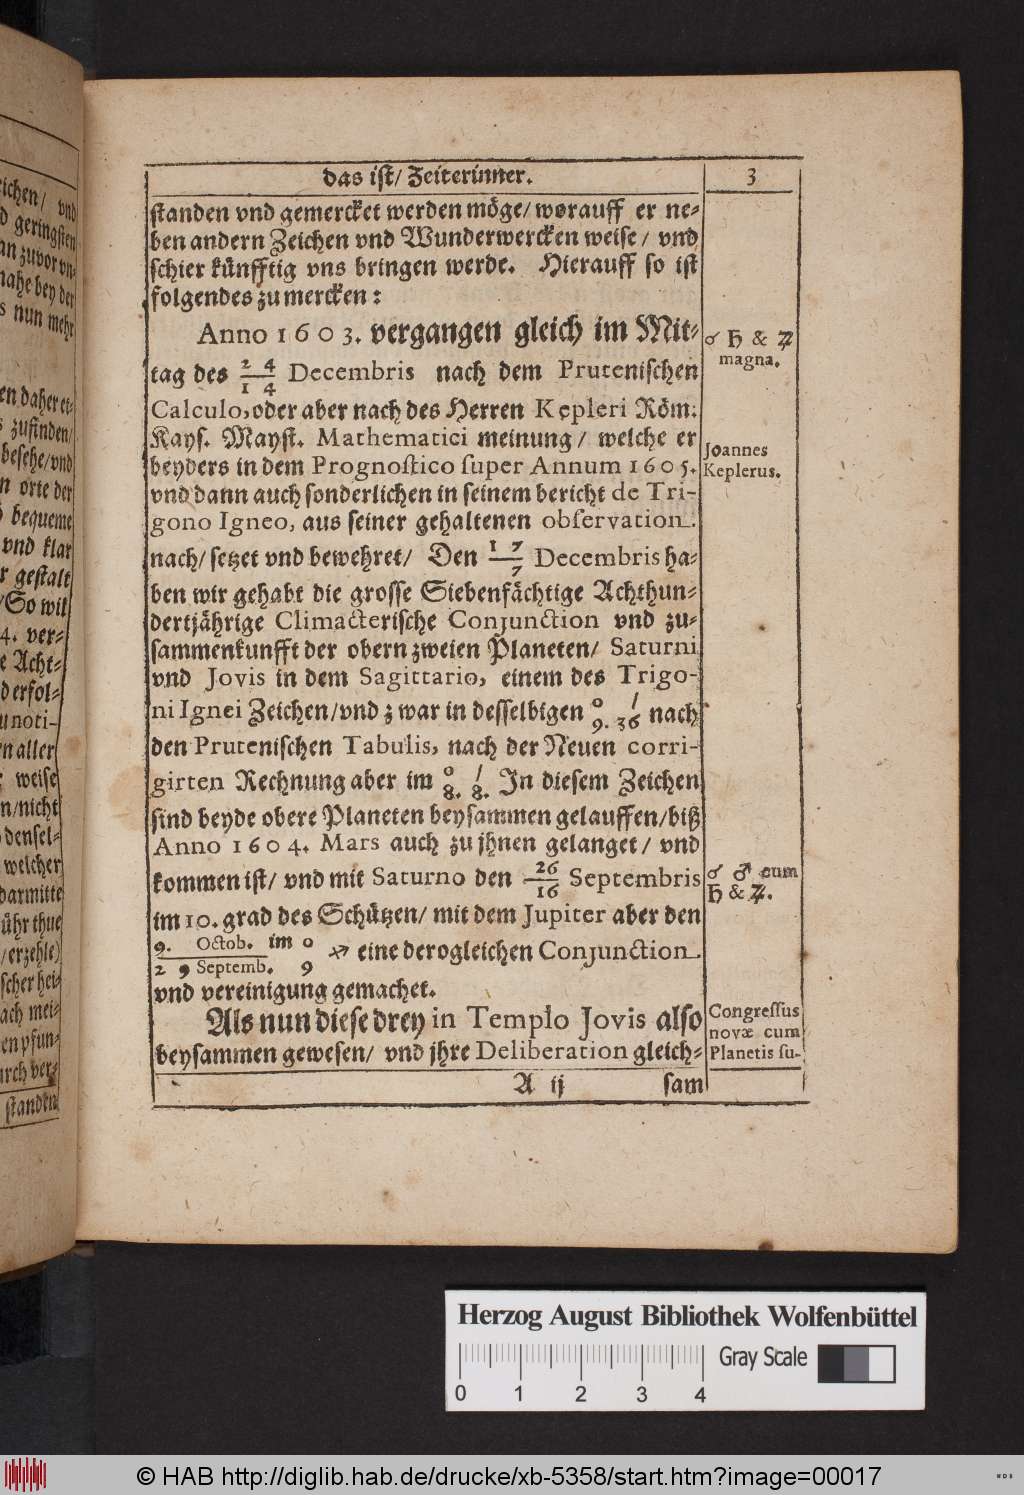 das ist/ Zeiterinner.
3
standen vnd gemercket werden möge/ worauff er ne-
ben andern Zeichen vnd Wunderwercken weise/ vnd
schier künfftig vns bringen werde. Hierauff so ist
folgendes zu mercken:
Anno 1603. vergangen gleich im Mit-
tag des 24/14 Decembris nach dem Prutenischen
Calculo, oder aber nach des Herren Kepleri Röm.
Kays. Mayst. Mathematici meinung/ welche er
beyders in dem Prognostico super Annum 1605.
vnd dann auch sonderlichen in seinem bericht de Tri-
gono Igneo, aus seiner gehaltenen observation.
nach/ setzet vnd bewehret/ Den 17/7 Decembris ha-
ben wir gehabt die grosse Siebenfächtige Achthun-
dertjährige Climacterische Conjunction vnd zu-
sammenkunfft der obern zweien Planeten/ Saturni
vnd Jovis in dem Sagittario, einem des Trigo-
ni Ignei Zeichen/ vnd zwar in desselbigen 9.° 36′ nach
den Prutenischen Tabulis, nach der Neuen corri-
girten Rechnung aber im 8.° 8.′ In diesem Zeichen
sind beyde obere Planeten beysammen gelauffen/ biß
Anno 1604. Mars auch zu jhnen gelanget/ vnd
kommen ist/ vnd mit Saturno den 26/16 Septembris
im 10. grad des Schützen/ mit dem Jupiter aber den
9. Octob./29 Septemb. im 9° ♐ eine derogleichen Conjunction
vnd vereinigung gemachet.
Als nun diese drey in Templo Jovis also
beysammen gewesen/ vnd jhre Deliberation gleich-
A ij
sam
☌ ♄ & ♃
magna.
Joannes
Keplerus.
☌ ♂ cum
♄ & ♃.
Congressus
novæ cum
Planetis su-
ichen/ vnd
d geringsten
an zuvor vn-
nahe bey der
s nun mehr
en daher et-
s zufinden/
besehe/ vnd
n orte der
bequeme
vnd klar
r gestalt
/ So wil
4. ver-
e Acht-
d erfol-
u noti-
n aller
; weise
n/ nicht
densel-
welcher
darmitte
ühr thue
/ erzehle)
scher hei-
ach mei-
en pfun-
urch ver-
standen
Herzog August Bibliothek Wolfenbüttel
Gray Scale
0 1 2 3 4
© HAB http://diglib.hab.de/drucke/xb-5358/start.htm?image=00017